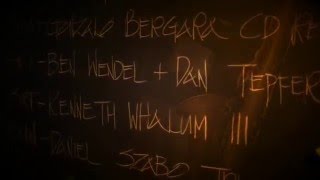 BERGARA CD RE
- BEN WENDEL + DAN TEPFER
- KENNETH WHALUM III
- DANIEL SZABO